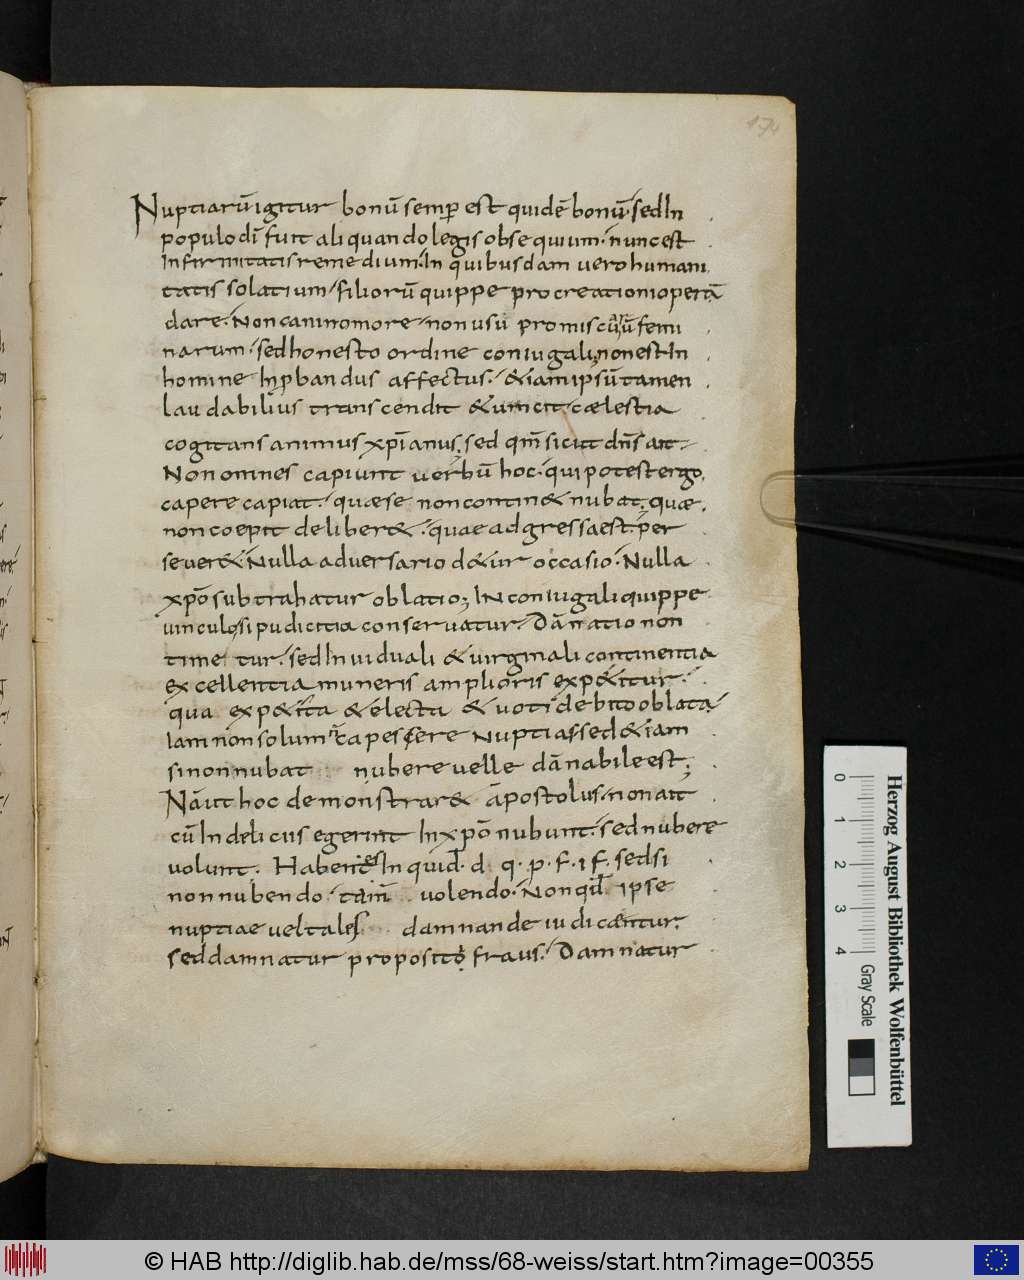 174
Nuptiarū igitur bonū semꝑ est quidē bonū· sed In
populo dī fuit aliquando legis obsequium· nunc est
Infirmitatis remedium· In quibusdam uero humani
tatis solatium· filiorū quippe procreationi operā
dare· Non canino more· non usu promiscuū femi
narum· sed honesto ordine coniugali; non est In
homine Inꝓbandus affectus· & iam ipsū tamen
laudabilius transcendit & uincit· cælestia
cogitans animus xp̄ianus; sed qm̄ sicut dn̄s ait
Non omnes capiunt uerbū hoc· qui potest ergo
capere capiat· quæ se non contin& nubat; quæ
non coepit deliber&· quae adgressa est· per
seuer&· Nulla aduersario d&ur occasio· Nulla
xp̄o subtrahatur oblatio; IN coniugali quippe
uinculo si pudicitia conseruatur· Dānatio non
timetur· sed In uiduali & uirginali continentia
excellentia muneris amplioris exp&itur·
qua exp&ita & electa & uoti debito oblata
iam non solum capescere nuptias sed &iam
si non nubat nubere uelle dānabile est;
Nā ut hoc demonstrar& apostolus· non ait
cū In deliciis egerint In xp̄o nubunt· sed nubere
uolunt· Habentes Inquid· d· q· p· f· i f· sed si
non nubendo tam̄ uolendo· Non qd̄ ipse
nuptiae uel tales damnande iudicantur·
sed damnatur propositi fraus· Damnatur
Herzog August Bibliothek Wolfenbüttel
0 1 2 3 4 Gray Scale
© HAB http://diglib.hab.de/mss/68-weiss/start.htm?image=00355